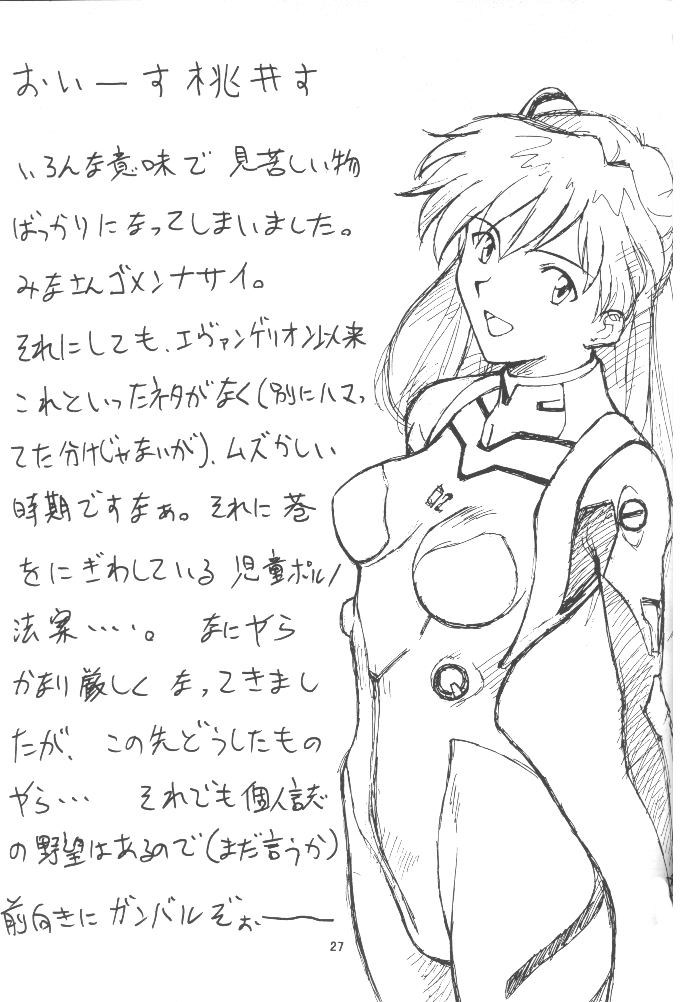 おいーす桃井す
いろんな意味で見苦しい物
ばっかりになってしまいました。
みなさんゴメンナサイ。
それにしても、エヴァンゲリオン以来
これといったネタがなく(別にハマっ
てた分けじゃないが)、ムズかしい
時期ですなぁ。それに巷
をにぎわしている児童ポルノ
法案‥‥。なにやら
かなり厳しくなってきまし
たが、この先どうしたもの
やら‥‥ それでも個人誌
の野望はあるので(まだ言うか)
前向きにガンバルぞぉーー
02
27